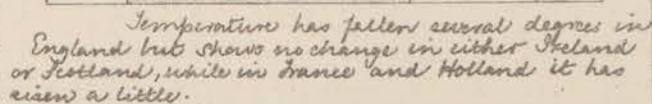 Temperature has fallen several degrees in
England but shows no change in either Ireland
or Scotland, while in France and Holland it has
risen a little.